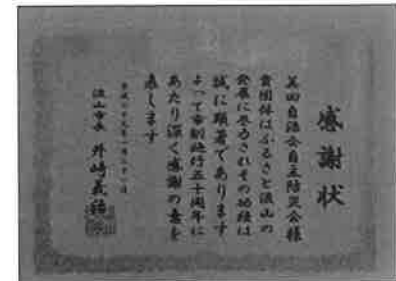 感謝状
美田自治会自主防災会様
貴団体はふるさと流山の
発展に参与されその功績は
誠に顕著であります
よって市制施行五十周年に
あたり深く感謝の意を
表します
平成二十九年一月二十一日
流山市長 井崎義治